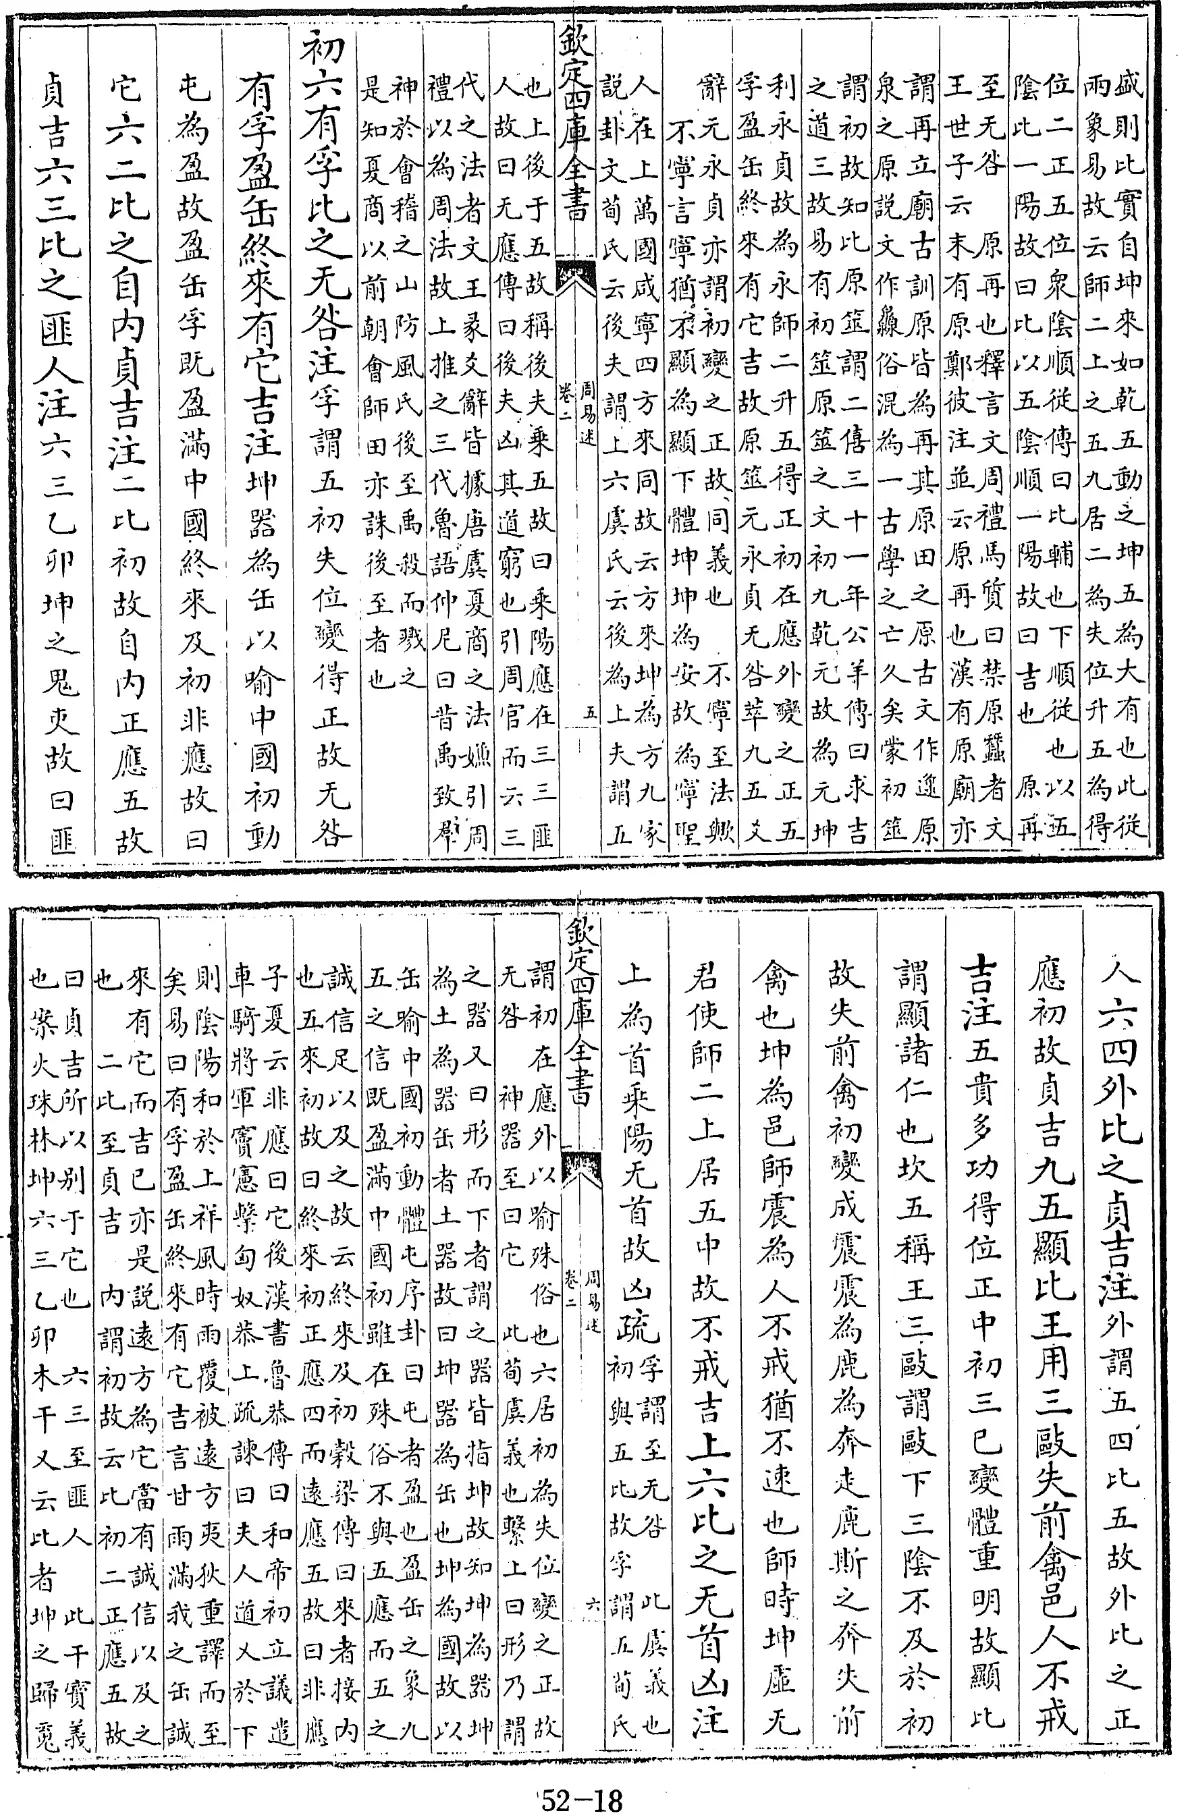 盛則比實自坤來如乾五動之坤五為大有也此從
兩象易故云師二上之五九居二為失位升五為得
位二正五位衆陰順從傳曰比輔也下順從也以五
陰比一陽故曰比以五陰順一陽故曰吉也　原再
至无咎　原再也釋言文周禮馬質曰禁原蠶者文
王世子云末有原鄭彼注並云原再也漢有原廟亦
謂再立廟古訓原皆為再其原田之原古文作邍原
泉之原説文作灥俗混為一古學之亡久矣蒙初筮
謂初故知比原筮謂二僖三十一年公羊傳曰求吉
之道三故易有初筮原筮之文初九乾元故為元坤
利永貞故為永師二升五得正初在應外變之正五
孚盈缶終來有它吉故原筮元永貞无咎萃九五爻
辭元永貞亦謂初變之正故同義也　不寧至法歟
不寧言寧猶不顯為顯下體坤坤為安故為寧聖
人在上萬國咸寧四方來同故云方來坤為方九家
説卦文荀氏云後夫謂上六虞氏云後為上夫謂五
欽定四庫全書
周易述
卷二
五
也上後于五故稱後夫乘五故曰乘陽應在三三匪
人故曰无應傳曰後夫凶其道窮也引周官而云三
代之法者文王彖爻辭皆據唐虞夏商之法嫌引周
禮以為周法故上推之三代魯語仲尼曰昔禹致羣
神於會稽之山防風氏後至禹殺而戮之
是知夏商以前朝會師田亦誅後至者也
初六有孚比之无咎注孚謂五初失位變得正故无咎
有孚盈缶終來有它吉注坤器為缶以喻中國初動
屯為盈故盈缶孚既盈滿中國終來及初非應故曰
它六二比之自内貞吉注二比初故自内正應五故
貞吉六三比之匪人注六三乙卯坤之鬼吏故曰匪
人六四外比之貞吉注外謂五四比五故外比之正
應初故貞吉九五顯比王用三敺失前禽邑人不戒
吉注五貴多功得位正中初三已變體重明故顯比
謂顯諸仁也坎五稱王三敺謂敺下三陰不及於初
故失前禽初變成震震為鹿為奔走鹿斯之奔失前
禽也坤為邑師震為人不戒猶不速也師時坤虛无
君使師二上居五中故不戒吉上六比之无首凶注
上為首乘陽无首故凶疏
孚謂至无咎　此虞義也
初與五比故孚謂五荀氏
欽定四庫全書
周易述
卷二
六
謂初在應外以喻殊俗也六居初為失位變之正故
无咎　神器至曰它　此荀虞義也繫上曰形乃謂
之器又曰形而下者謂之器皆指坤故知坤為器坤
為土為器缶者土器故曰坤器為缶也坤為國故以
缶喻中國初動體屯序卦曰屯者盈也盈缶之象九
五之信既盈滿中國初雖在殊俗不與五應而五之
誠信足以及之故云終來及初穀梁傳曰來者接内
也五來初故曰終來初正應四而遠應五故曰非應
子夏云非應曰它後漢書魯恭傳曰和帝初立議遣
車騎將軍竇憲擊匈奴恭上疏諫曰夫人道乂於下
則陰陽和於上祥風時雨覆被遠方夷狄重譯而至
矣易曰有孚盈缶終來有它吉言甘雨滿我之缶誠
來有它而吉已亦是説遠方為它當有誠信以及之
也　二比至貞吉　内謂初故云比初二正應五故
曰貞吉所以别于它也　六三至匪人　此干寶義
也案火珠林坤六三乙卯木干又云比者坤之歸䰟
52-18